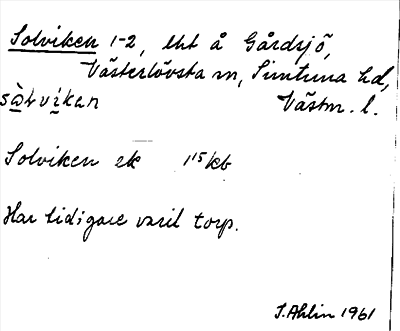 Solviken 1-2, lht å Gårdsjö,
Västerlövsta sn, Simtuna hd,
Västm. l.
sòlvikan
Solviken ek 1¹⁵ kb
Har tidigare varit torp.
I. Ahlin 1961